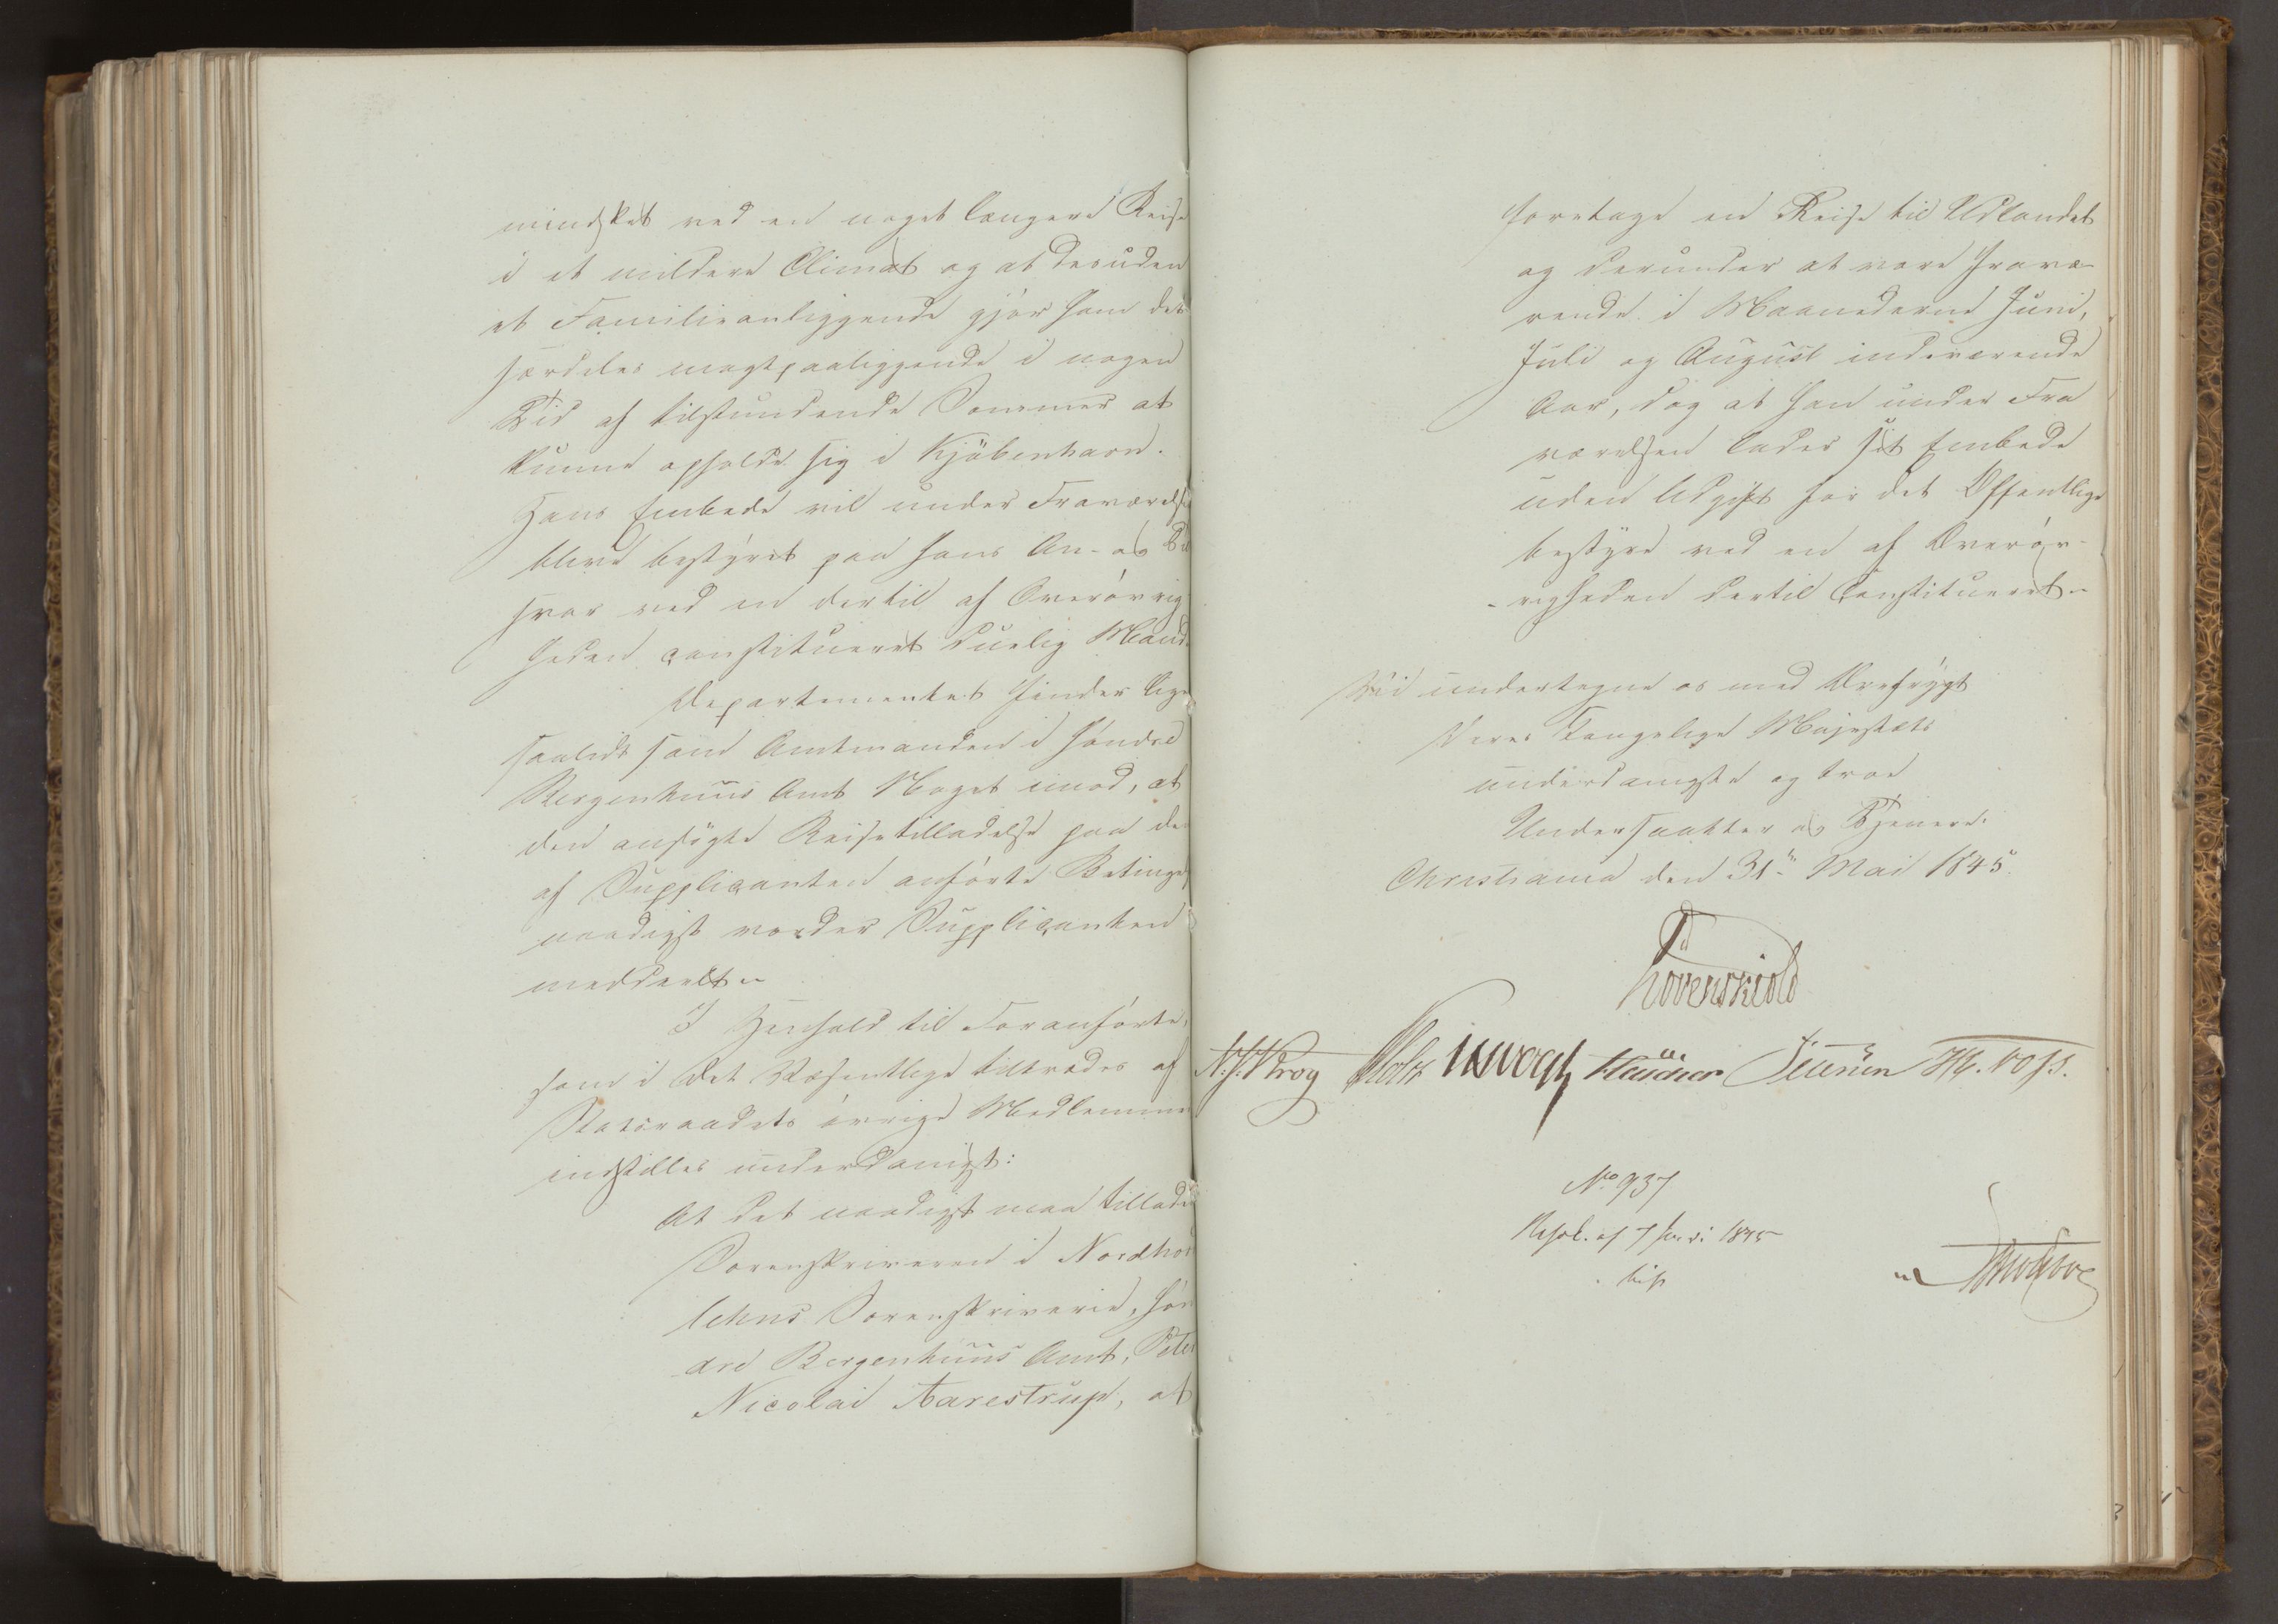 mindsket ved en noget længere Reise
i et mildere Climat og at desuden
et Familieanliggende gjør ham det
særdeles magtpaaliggende i nogen
Tid af tilstundende Sommer at
kunne opholde sig i Kjöbenhavn.
Hans Embede vil under Fraværelsen
blive bestyret paa hans An- og Til
svar ved en dertil af Overøvrig
heden constitueret duelig Mand.
Departementet finder lige
saalidt som Amtmanden i Söndre
Bergenhuus Amt Noget imod, at
den ansögte Reisetilladelse paa de
af Supplicanten anförte Betingel
naadigst vorder Supplicanten
meddeelt.
I Henhold til Foranförte,
som i det Væsentlige tiltrædes af
Statsraadets övrige Medlemmer
indstilles underdanigst:
At det naadigst maa tillades
Sorenskriveren i Nordhord
lehns Sorenskriverie, Søn
dre Bergenhuus Amt, Peter
Nicolai Aarestrup, at
foretage en Reise til Udlandet
og derunder at være fravæ-
rende i Maanederne Juni,
Juli og August indeværende
Aar, dog at han under Fra
værelsen lader sit Embede
uden Udgift for det Offentlige
bestyre ved en af Overöv-
-righeden dertil Constitueret.
Vi undertegne os med Ærefrygt
Deres Kongelige Majestæts
underdanigste og troe
Undersaatter og Tjenere.
Christiania den 31te Mai 1845.
Løvenskiold
N. J. Krog Holst Vogt Petersen H. Foss.
No 937
Resol. af 7 Juni 1845